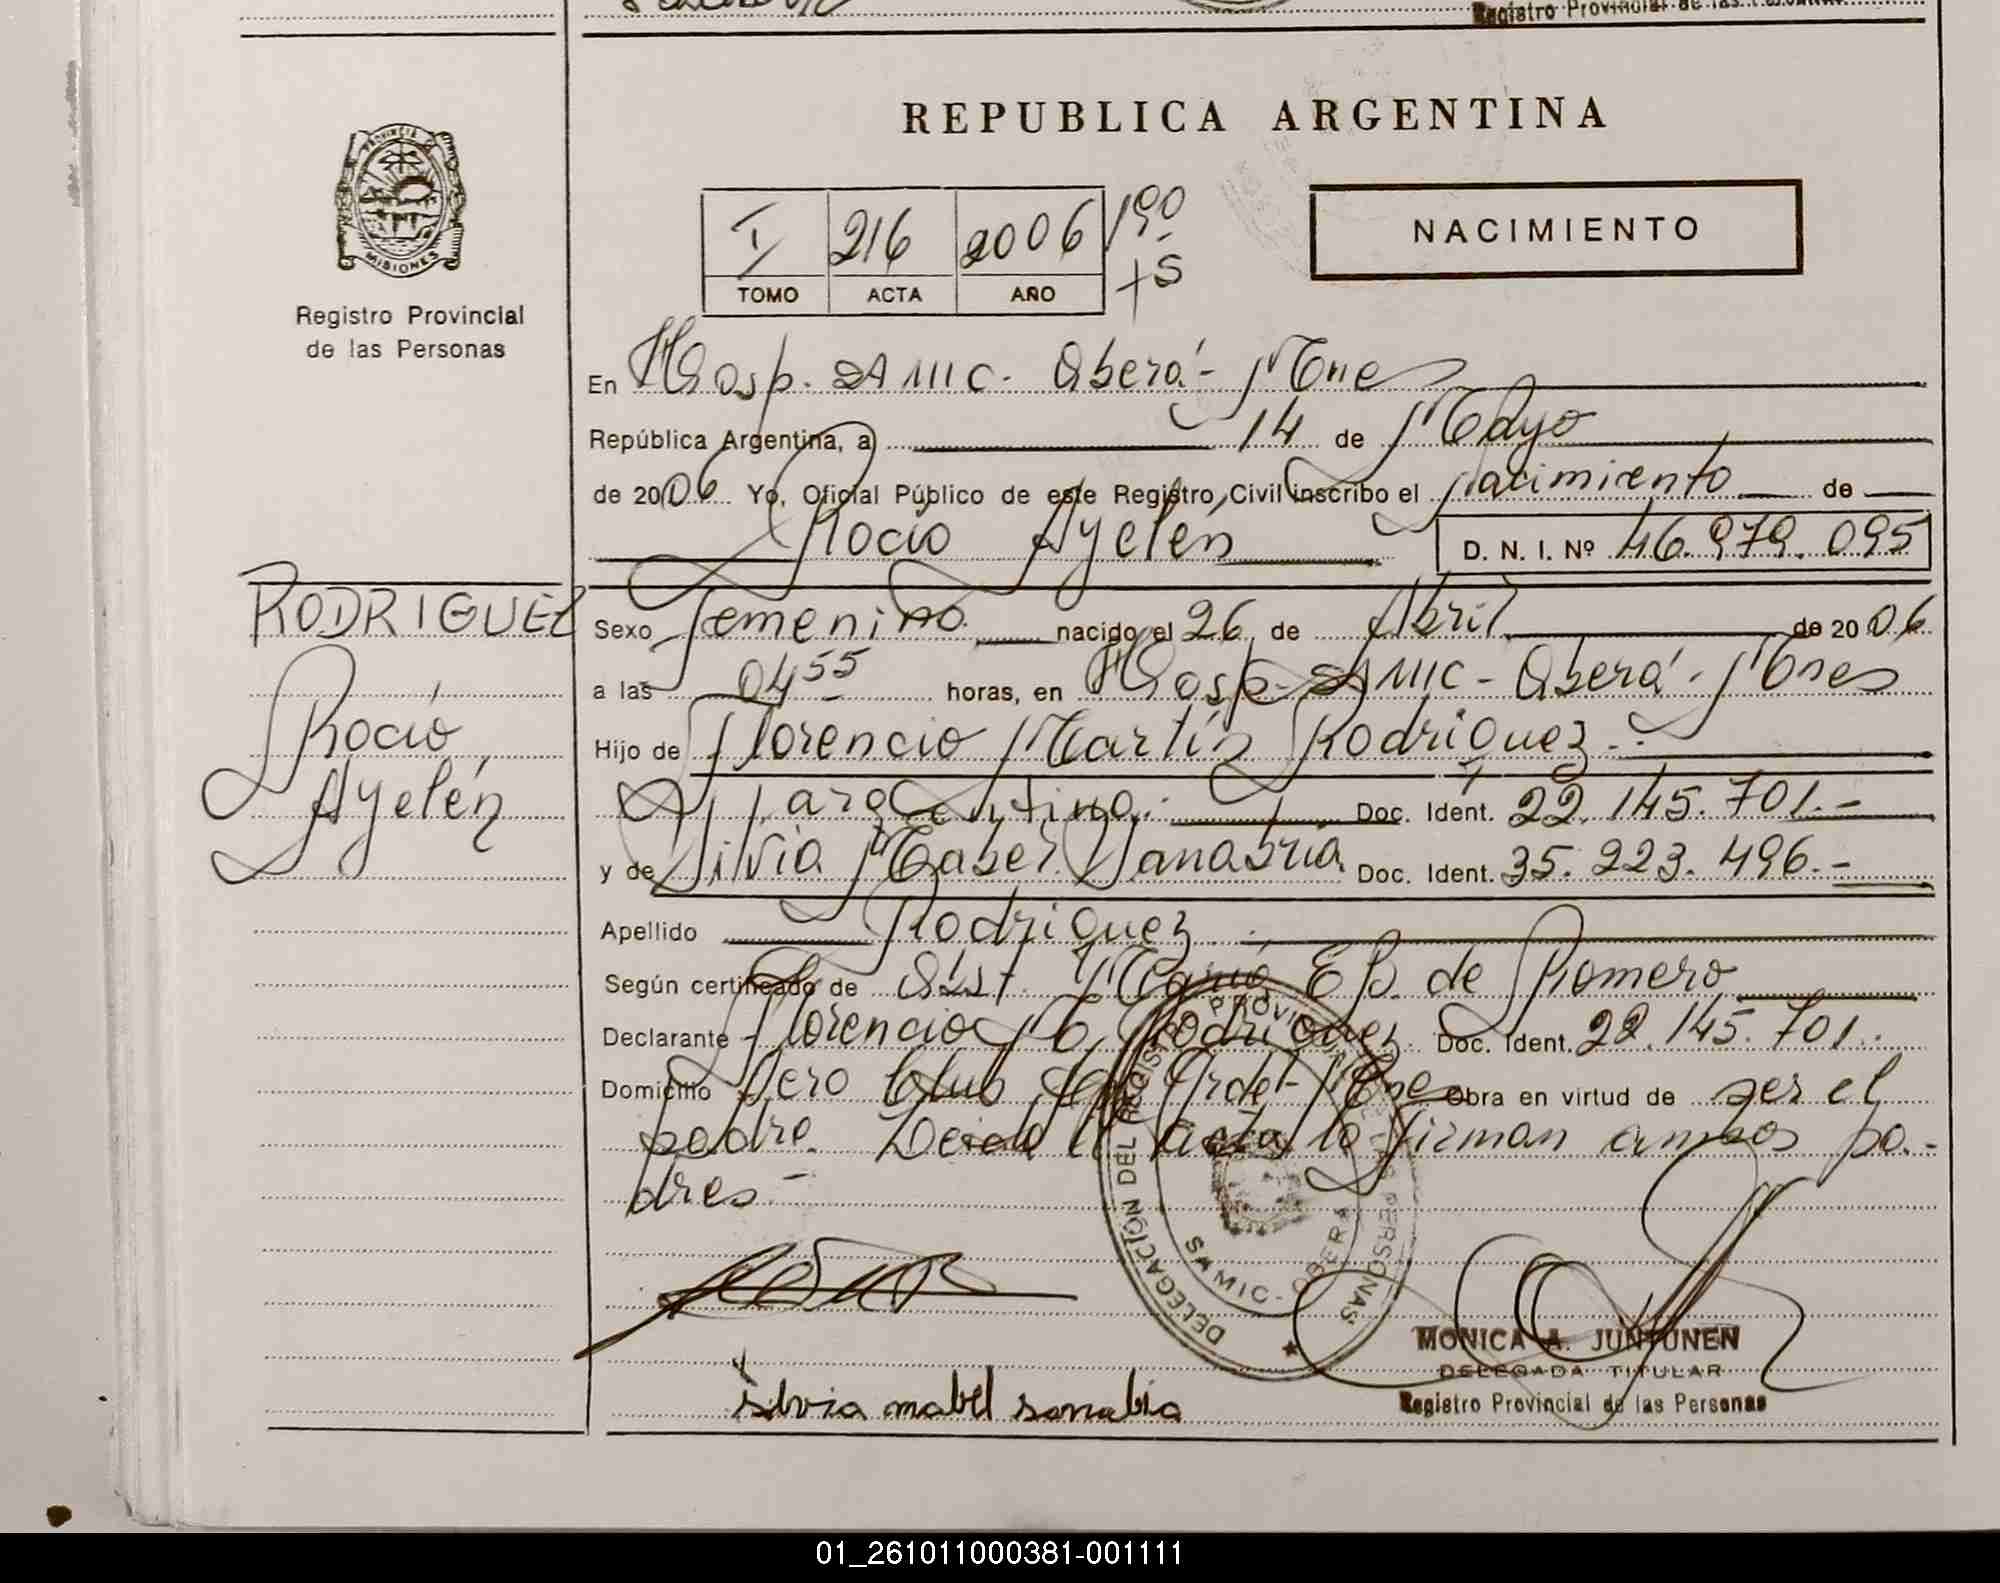 Registro Provincial de las
REPUBLICA ARGENTINA
PROVINCIA
MISIONES
Registro Provincial
de las Personas
I 216 2006 190
TOMO ACTA AÑO +S
NACIMIENTO
En Hosp. SAMIC - Oberá - Mnes
República Argentina, a 14 de Mayo
de 2006 Yo, Oficial Público de este Registro Civil inscribo el Nacimiento de
Rocío Ayelén D. N. I. Nº 46.979.095
RODRIGUEZ
Rocío
Ayelén
Sexo femenino nacido el 26 de Abril de 2006
a las 04 55 horas, en Hosp. SAMIC - Oberá - Mnes
Hijo de Florencio Martín Rodríguez.
argentino. Doc. Ident. 22.145.701.-
y de Silvia Mabel Sanabria Doc. Ident. 35.223.496.-
Apellido Rodriguez.
Según certificado de Obst. María E B. de Romero
Declarante Florencio M. Rodriguez. Doc. Ident. 22.145.701.
Domicilio Aero Club Obra en virtud de ser el
padre. el acta la firman ambos pa-
dres.-
DELEGACIÓN DEL REGISTRO PROVINCIAL DE LAS PERSONAS
SAMIC - OBERA
silvia mabel sanabria
MONICA A. JUNTUNEN
DELEGADA TITULAR
Registro Provincial de las Personas
01_261011000381-001111